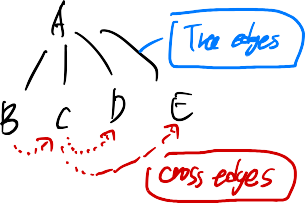 A
Tree edges
B C D E
cross edges